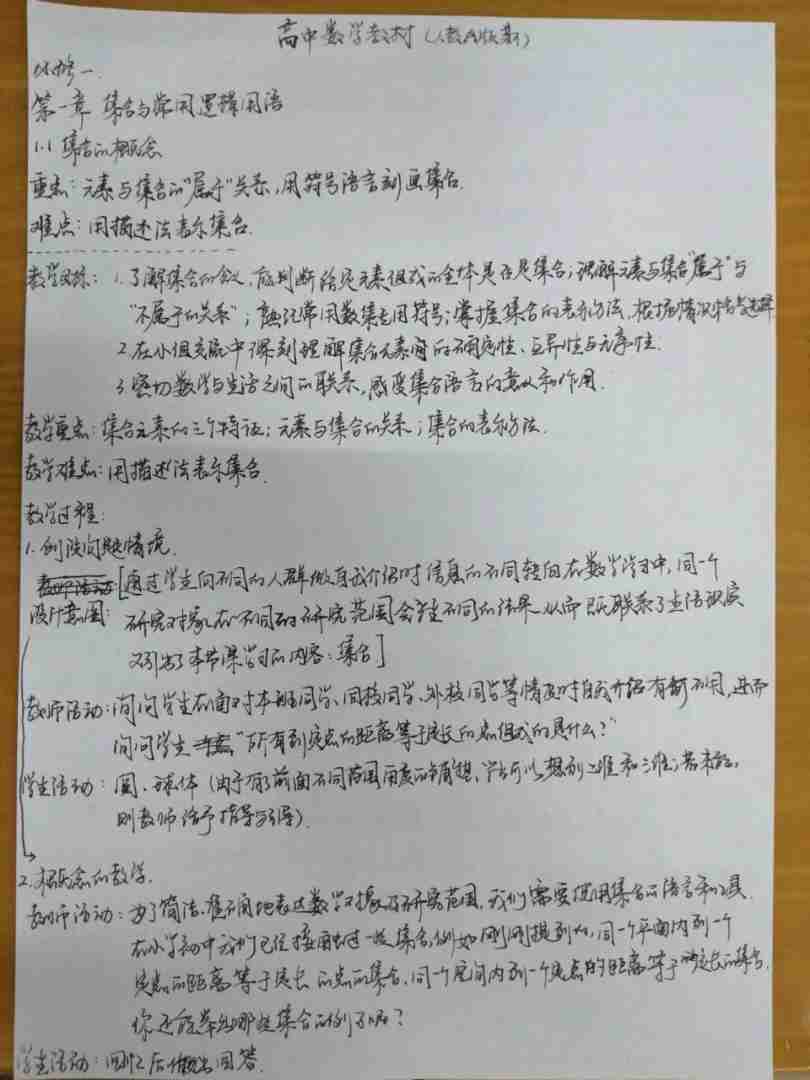 高中数学教材(人教A版)
必修一.
第一章 集合与常用逻辑用语
1.1 集合的概念
重点: 元素与集合的"属于"关系,用符号语言刻画集合.
难点: 用描述法表示集合.
教学目标: 1.了解集合的含义,能判断给定元素组成的全体是否是集合;理解元素与集合"属于"与
"不属于的关系";熟记常用数集专用符号;掌握集合的表示方法,根据情况
2.在小组交流中深刻理解集合元素间的确定性、互异性与无序性.
3.密切数学与生活之间的联系,感受集合语言的意义和作用.
教学重点: 集合元素的三个特征;元素与集合的关系;集合的表示方法.
教学难点: 用描述法表示集合.
教学过程:
1.创设问题情境.
[通过学生向不同的人群做自我介绍时信息的不同转向在数学学习中,同一个
设计意图: 研究对象在不同的研究范围会产生不同的结果,从而既联系了生活现实
又引出了本节课学习的内容:集合]
教师活动: 询问学生在面对本班同学、同校同学、外校同学等情况时自我介绍有何不同,进而
询问学生"所有到定点的距离等于定长的点组成的是什么?"
学生活动: 圆、球体(由于有了前面不同范围用意的铺垫,学生可以想到二维和三维;若未能,
则教师给予指导引导).
2.概念的教学.
教师活动: 为了简洁、准确地表达数学对象及研究范围,我们需要使用集合的语言和工具.
在小学初中我们已经接触过一些集合,例如刚刚提到的,同一个平面内到一个
定点的距离等于定长的点的集合,同一个空间内到一个定点的距离等于定长的集合.
你还能举出哪些集合的例子呢?
学生活动: 回忆后回答.